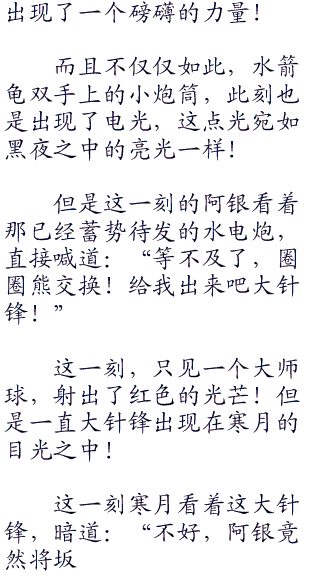 出现了一个磅礴的力量！
而且不仅仅如此，水箭
龟双手上的小炮筒，此刻也
是出现了电光，这点光宛如
黑夜之中的亮光一样！
但是这一刻的阿银看着
那已经蓄势待发的水电炮，
直接喊道：“等不及了，圈
圈熊交换！给我出来吧大针
锋！”
这一刻，只见一个大师
球，射出了红色的光芒！但
是一直大针锋出现在寒月的
目光之中！
这一刻寒月看着这大针
锋，暗道：“不好，阿银竟
然将坂